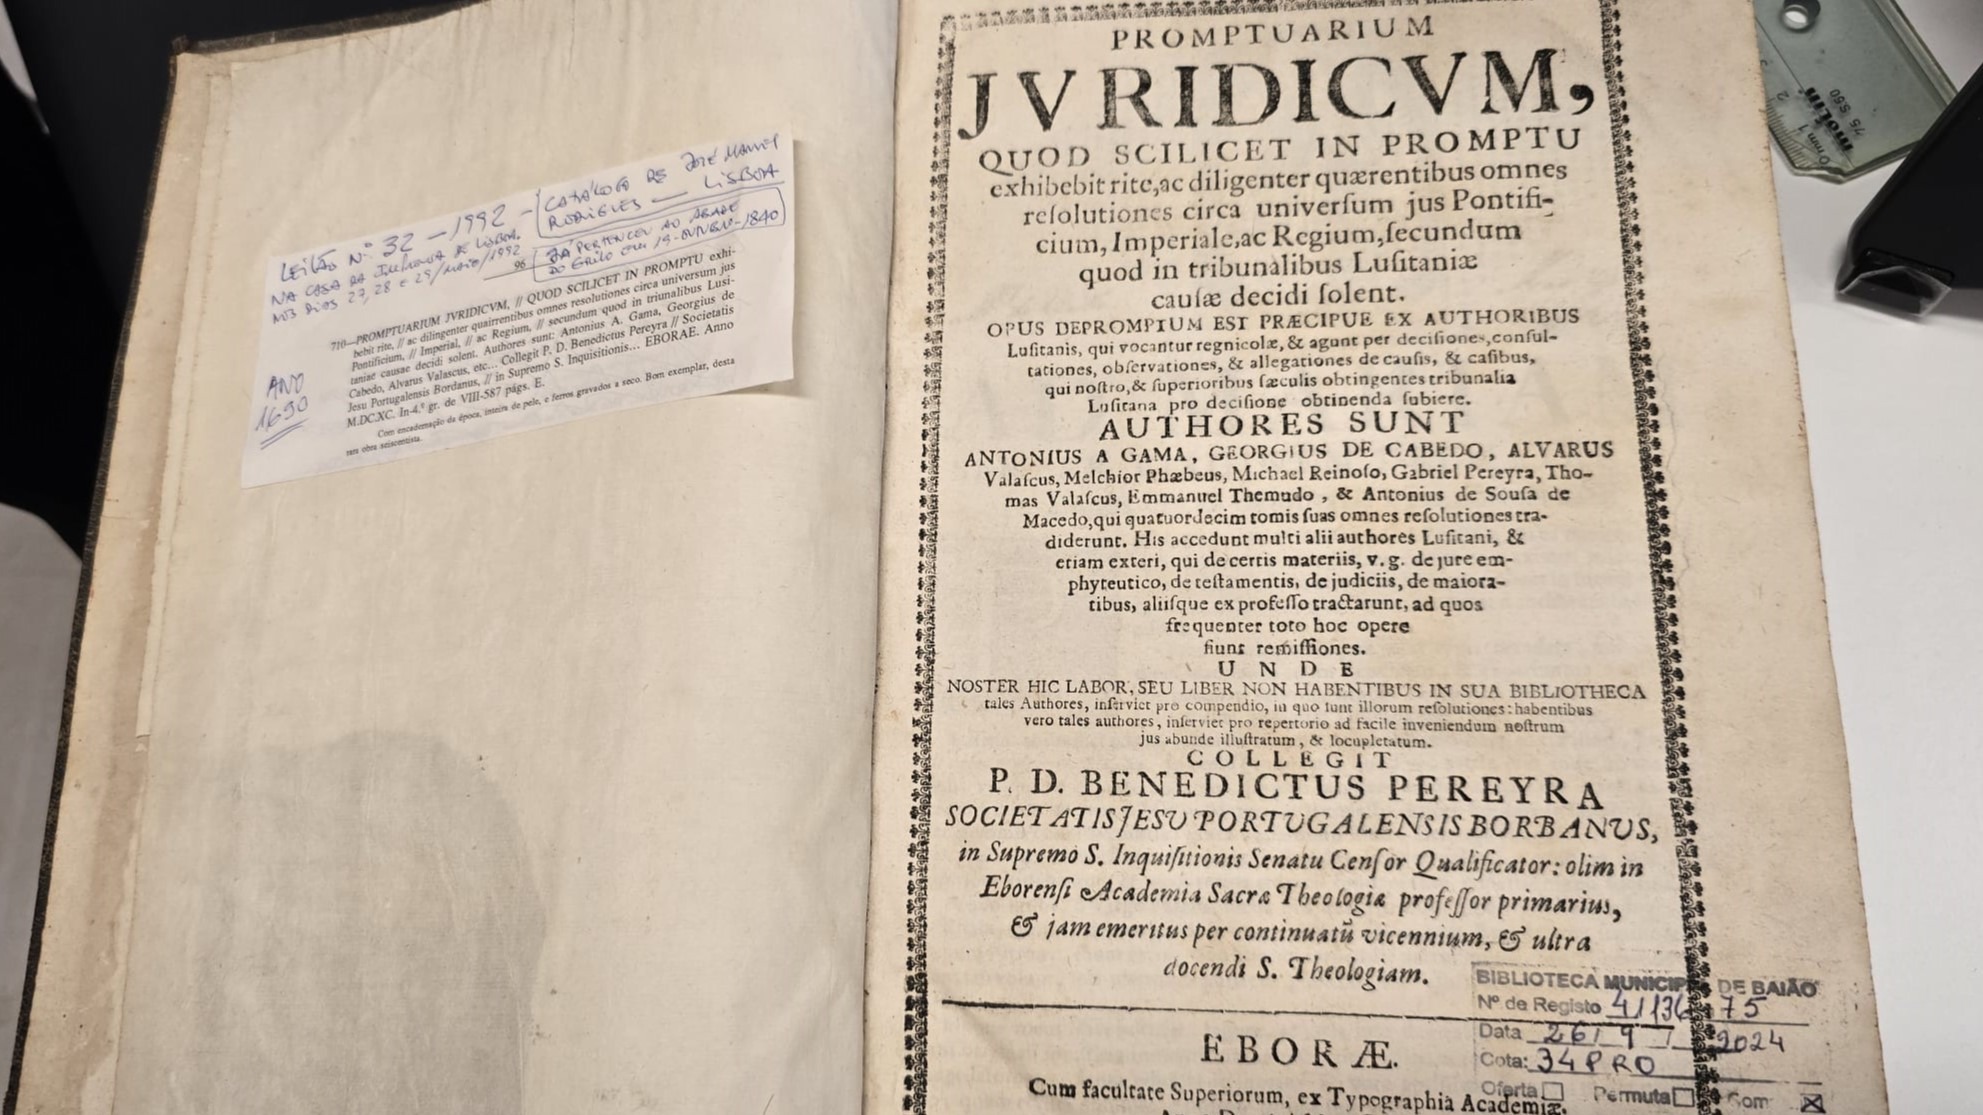 LEILÃO Nº 32 — 1992 — CATÁLOGO DE JOSÉ MANUEL
RODRIGUES — LISBOA
NA CASA DA IMPRENSA DE LISBOA.
NOS DIAS 27, 28 E 29/MAIO/1992
JÁ PERTENCEU AO ABADE
DO GRILO EM 19-OUTUBRO-1840
96
710—PROMPTUARIUM JVRIDICVM, // QUOD SCILICET IN PROMPTU exhi-
bebit rite, // ac diligenter quairrentibus omnes resolutiones circa universum jus
Pontificium, // Imperial, // ac Regium, // secundum quod in triunalibus Lusi-
taniae causae decidi solent. Authores sunt: Antonius A. Gama, Georgius de
Cabedo, Alvarus Valascus, etc... Collegit P. D. Benedictus Pereyra // Societatis
Jesu Portugalensis Bordanus, // in Supremo S. Inquisitionis... EBORAE. Anno
M.DC.XC. In-4.º gr. de VIII-587 págs. E.
Com encadernação da época, inteira de pele, e ferros gravados a seco. Bom exemplar, desta
rara obra seiscentista.
ANO
1690
PROMPTUARIUM
JVRIDICVM,
QUOD SCILICET IN PROMPTU
exhibebit rite, ac diligenter quærentibus omnes
reſolutiones circa univerſum jus Pontifi-
cium, Imperiale, ac Regium, ſecundum
quod in tribunalibus Luſitaniæ
cauſæ decidi ſolent.
OPUS DEPROMPTUM EST PRÆCIPUE EX AUTHORIBUS
Luſitanis, qui vocantur regnicolæ, & agunt per deciſiones, conſul-
tationes, obſervationes, & allegationes de cauſis, & caſibus,
qui noſtro, & ſuperioribus ſæculis obtingentes tribunalia
Luſitana pro deciſione obtinenda ſubiere.
AUTHORES SUNT
ANTONIUS A GAMA, GEORGIUS DE CABEDO, ALVARUS
Valaſcus, Melchior Phæbeus, Michael Reinoſo, Gabriel Pereyra, Tho-
mas Valaſcus, Emmanuel Themudo, & Antonius de Souſa de
Macedo, qui quatuordecim tomis ſuas omnes reſolutiones tra-
diderunt. His accedunt multi alii authores Luſitani, &
etiam exteri, qui de certis materiis, v. g. de jure em-
phyteutico, de teſtamentis, de judiciis, de maiora-
tibus, aliiſque ex profeſſo tractarunt, ad quos
frequenter toto hoc opere
fiunt remiſſiones.
UNDE
NOSTER HIC LABOR, SEU LIBER NON HABENTIBUS IN SUA BIBLIOTHECA
tales Authores, inſerviet pro compendio, in quo ſunt illorum reſolutiones: habentibus
vero tales authores, inſerviet pro repertorio ad facile inveniendum noſtrum
jus abunde illuſtratum, & locupletatum.
COLLEGIT
P. D. BENEDICTUS PEREYRA
SOCIETATIS JESU PORTUGALENSIS BORBANUS,
in Supremo S. Inquiſitionis Senatu Cenſor Qualificator: olim in
Eborenſi Academia Sacræ Theologiæ profeſſor primarius,
& jam emeritus per continuatũ vicennium, & ultra
docendi S. Theologiam.
EBORÆ.
Cum facultate Superiorum, ex Typographia Academiæ,
BIBLIOTECA MUNICIPAL DE BAIÃO
Nº de Registo 41136 75
Data 26/9/2024
Cota: 34 PRO
Oferta Permuta Com
molin
75
S.60